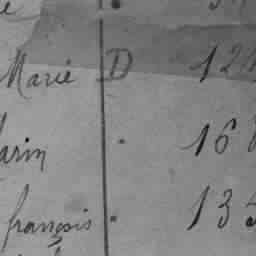 Marie D 12
arin . 16
françois . 135